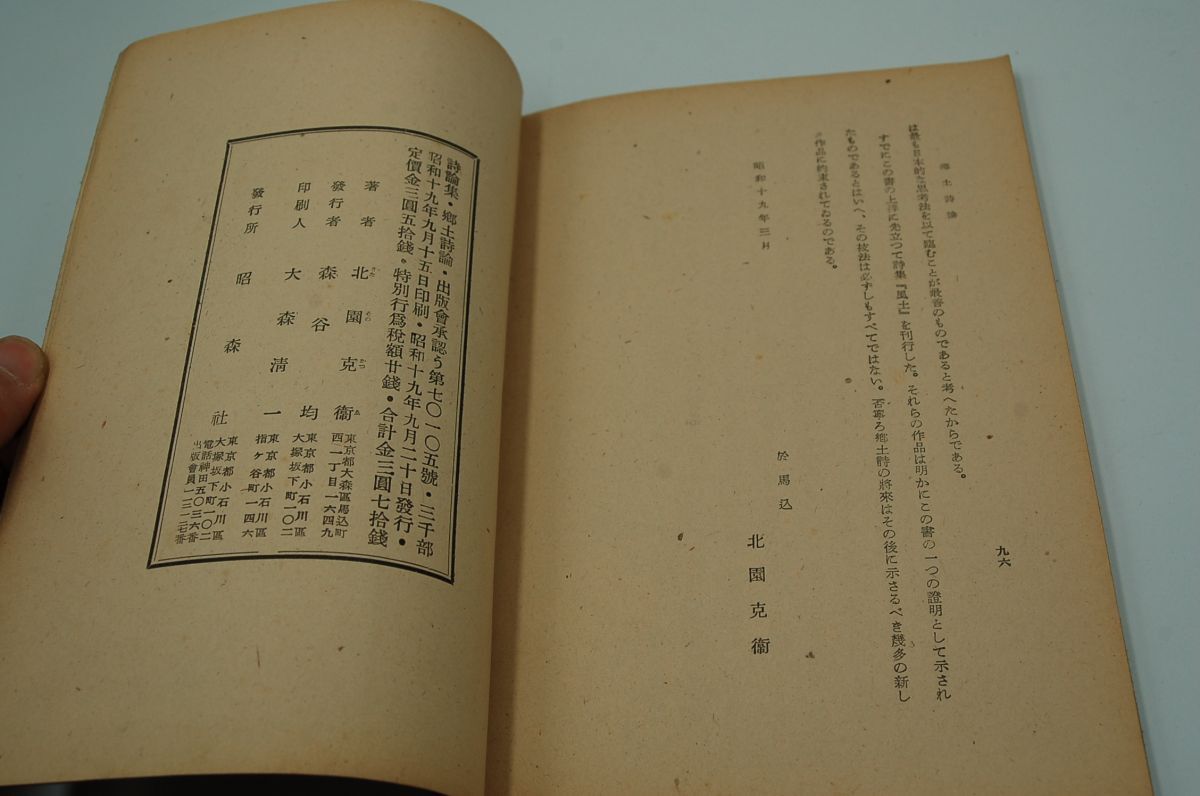 郷土詩論
九六
は最も日本的な思考法を以て臨むことが最善のものであると考へたからである。
すでにこの書の上梓に先立つて詩集『風土』を刊行した。それらの作品は明かにこの書の一つの證明として示され
たものであるとはいへ、その技法は必ずしもすべてではない。否寧ろ郷土詩の將來はその後に示さるべき幾多の新し
い作品に約束されてゐるのである。
昭和十九年三月
於馬込
北園克衞
詩論集・鄕土詩論・出版會承認う第七〇一〇五號・三千部
昭和十九年九月十五日印刷・昭和十九年九月二十日發行・
定價金三圓五拾錢・特別行爲稅額廿錢・合計金三圓七拾錢
著者 北園克衞
東京都大森區馬込町
西二丁目一六四九
發行者 森谷均
東京都小石川區
大塚坂下町一〇二
印刷人 大森淸一
東京都小石川區
指ヶ谷町一四六
發行所 昭森社
東京都小石川區
大塚坂下町一〇二
電話神田五〇三六番
出版會員一三一二七番